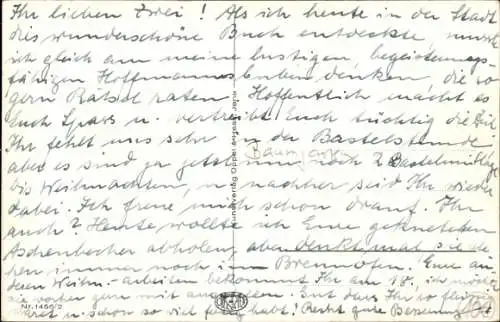 Ihr lieben Zwei! Als ich heute in der Stadt
dies wunderschöne Buch entdeckte, musst
ich gleich an meine lustigen, begeisterungs-
fähigen Hoffmannsbuben denken, die so
gern Rätsel raten. Hoffentlich macht es
Euch Spass u. vertreibt Euch tüchtig die Zeit
Ihr fehlt uns sehr in der Bastelstunde
aber es sind ja jetzt nur noch 2 Bastelmittage
bis Weihnachten, u. nachher seid Ihr wieder
dabei. Ich freue mich schon drauf. Ihr
auch? Heute wollte ich Eure gekneteten
Aschenbecher abholen, aber denkt mal sie ste-
hen immer noch im Brennofen. Eure an-
deren Weihn.-arbeiten bekommt Ihr am 18., ich möchte
sie vorher gern mit ausstellen. Gut dass Ihr so fleissig
wart u. schon so viel fertig habt! Recht gute Besserung
Nr. 1466/2